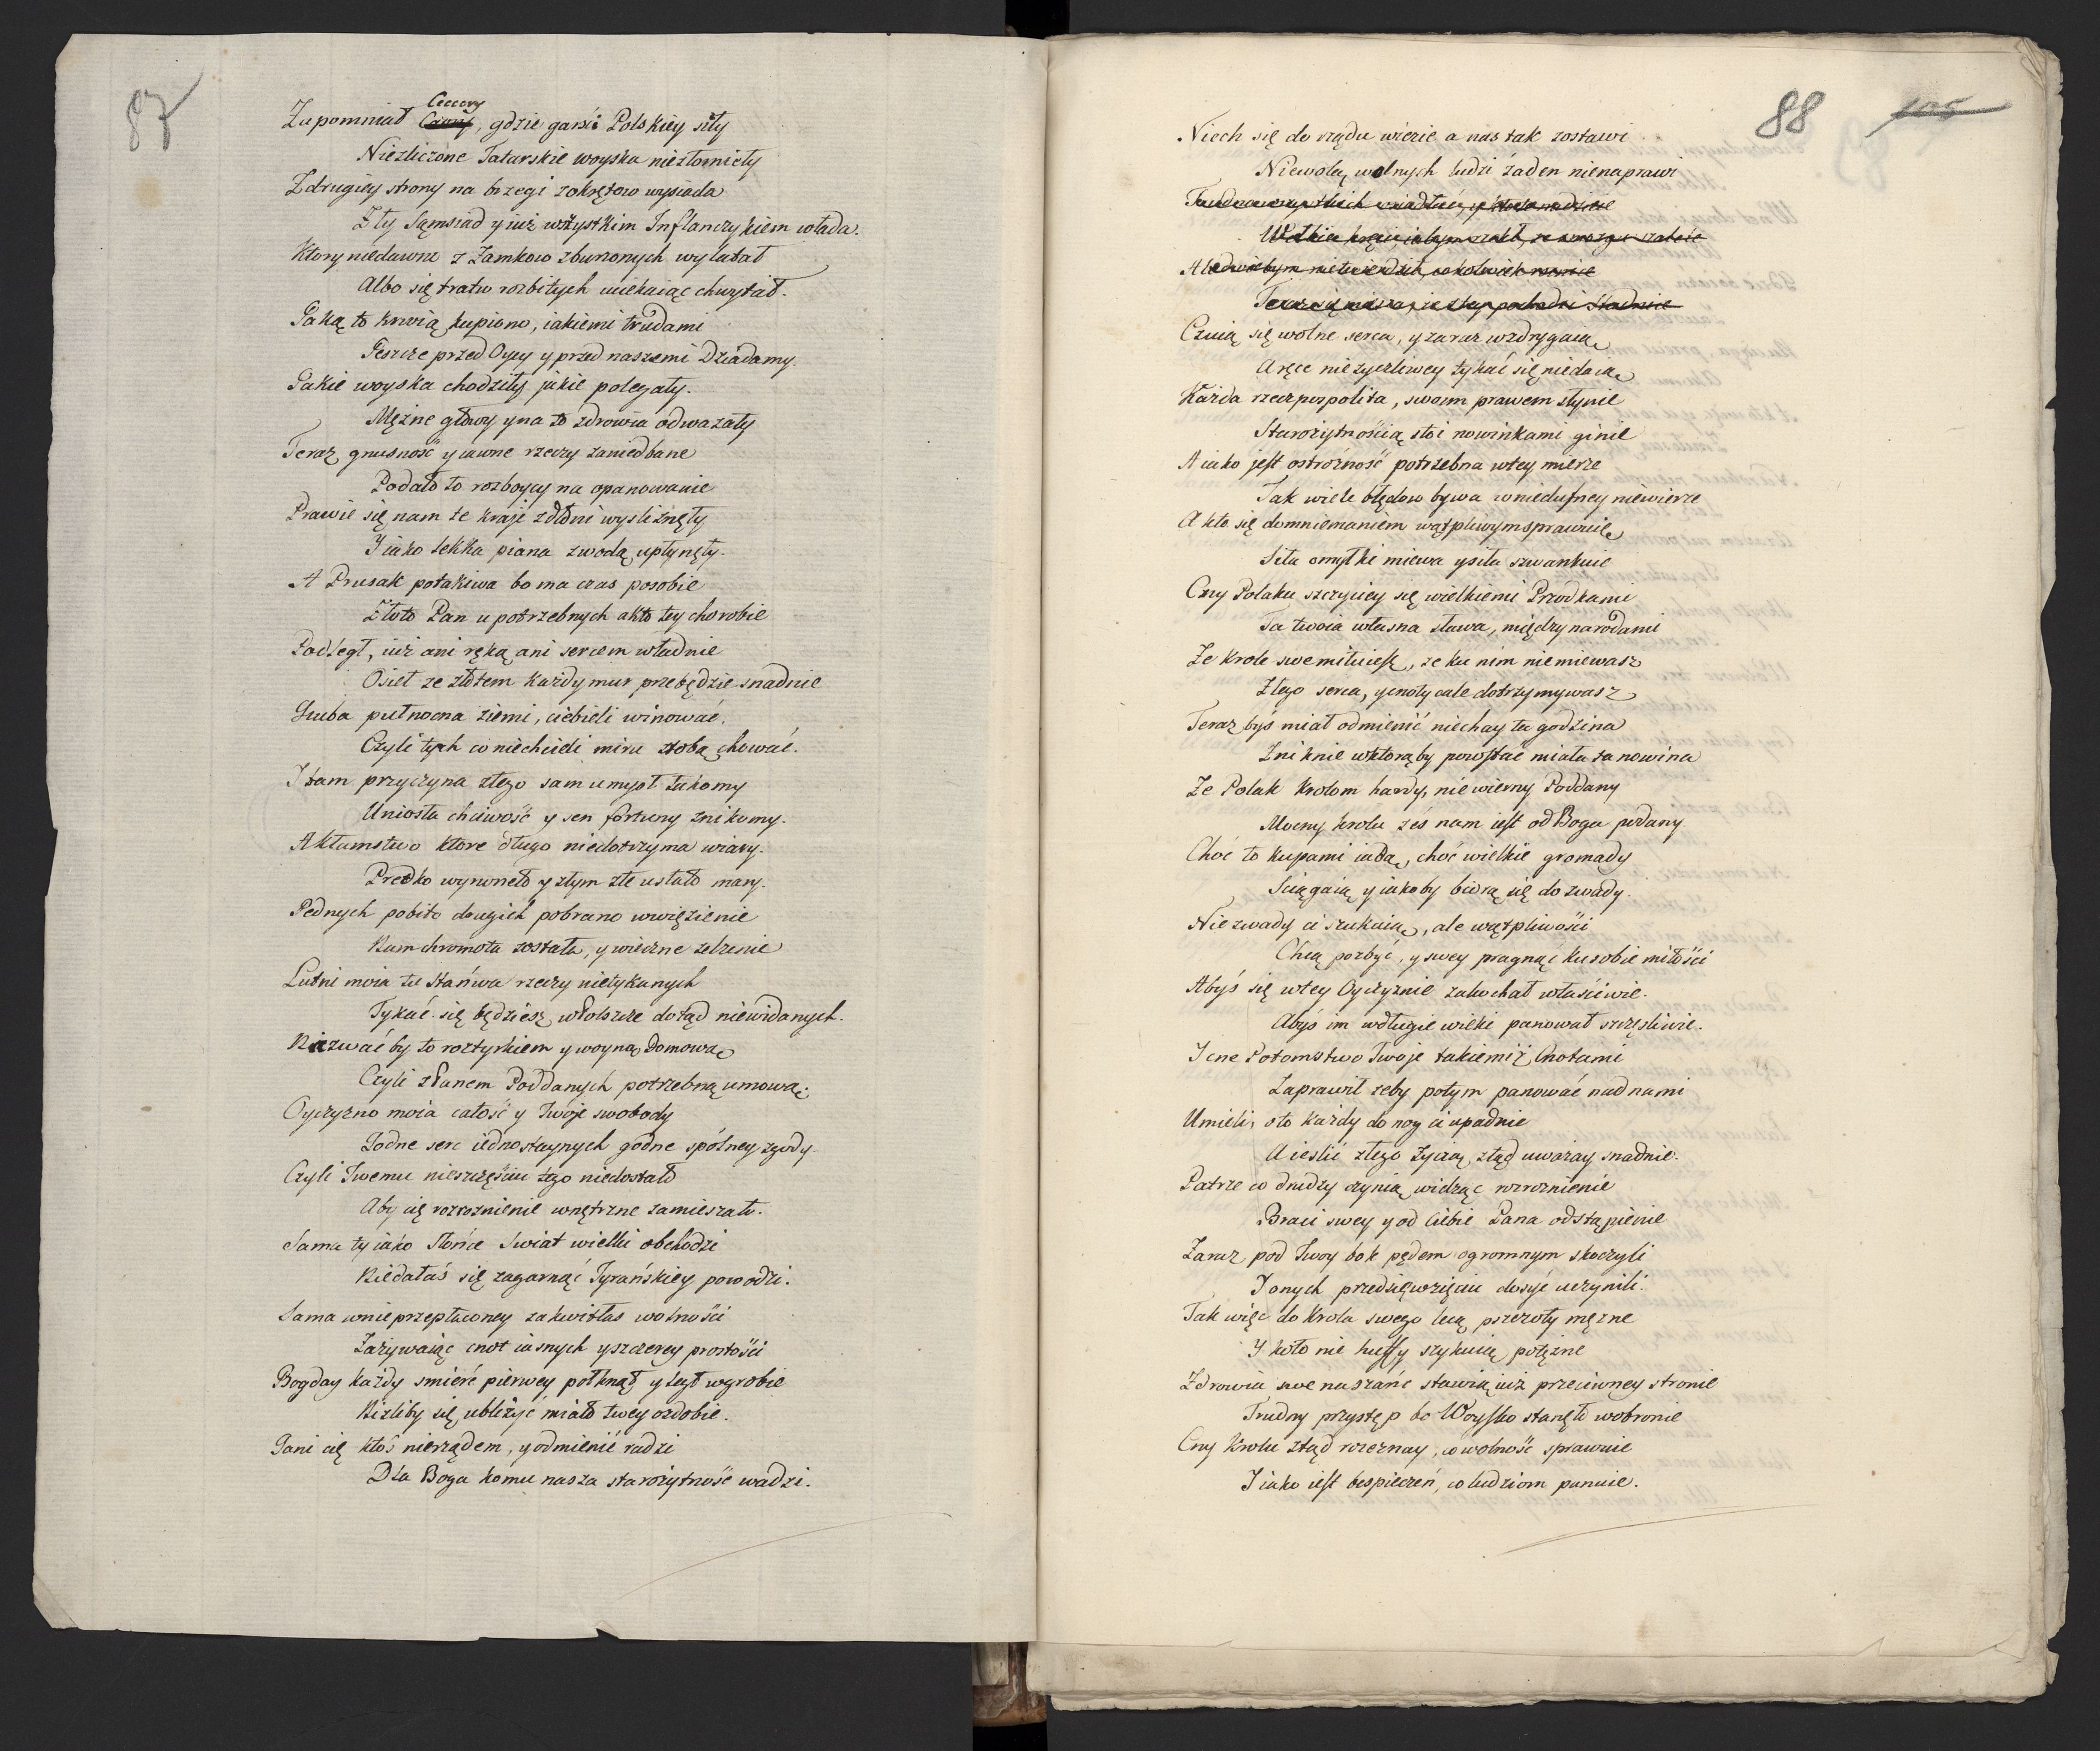 87
Cecory
Zapomniał Cecory, gdzie garść Polskiey siły
Niezliczone Tatarskie woyska niezłomiely
Zdrugiey strony na brzegi zokrętow wysiada
Zły Sąmsiad y iuż wszystkim Inflanczykiem włada.
Ktory niedawno z Zamkow zburzonych wylatał
Albo się tratw rozbitych uciekaiąc chwytał.
Jaką to krwią kupiono, iakiemi trudami
Jeszcze przed Oycy y przed naszemi Dziadamy.
Jakie woyska chodziły jakie polegały.
Mężne głowy y na to zdrowia odwazały
Teraz gnusność y iawne rzeczy zaniedbane
Podało to rozboycy na opanowanie
Prawie się nam te kraje zdłoni wysliznęły
Y iako lekka piana zwodą upłynęły.
A Prusak potakiwa bo ma czas posobie
Złoto Pan u potrzebnych akto tey chorobie
Podległ, iuż ani ręką ani sercem władnie
Osieł ze złotem każdy mur przebędzie snadnie
Gruba pułnocna ziemi, ciebieli winować.
Czyli tych co niechcieli miru ztobą chować.
I tam przyczyna złego sam umysł łakomy
Uniosła chciwość y sen fortuny znikomy.
A kłamstwo ktore długo niedotrzyma wiary.
Predko wywarło y złym źle ustało mary.
Jednych pobito drugich pobrano wwięzienie
Nam chromota została, y wieczne zelżenie
Lutni moia tu strońwa rzeczy nietykanych
Tykać się będziesz w Polszcze dotąd niewidanych.
Nazwać by to roztyrkiem y woyną Domową
Czyli z Panem Poddanych potrzebną umową.
Oyczyzno moia całość y Twoje swobody
Godne serc iednostaynych godne spólney zgody.
Czyli Twemu nieszczęściu tego niedostało
Aby cię rozroznienie wnętrzne zamieszało.
Sama ty iako Słońce Swiat wielki obchodzi
Niedałaś się zagarnąć Tyrańskiey powodzi.
Sama wnieprzepłaconey zakwitłas wolności
Zażywaiąc cnot iasnych y szczerey prostości
Bogday każdy smierć pierwey połknął y legł wgrobie
Niżliby się ubliżyć miało twey ozdobie.
Gani cię ktoś nierządem, y odmienić radzi
Dla Boga komu nasza starożytność wadzi.
88 105
Niech się do rządu wiezie a nas tak zostawi
Niewolą wolnych ludzi żaden nienaprawi
Czuią się wolne serca, y zaraz wzdrygaią
A ręce nieżyczliwey tykać się niedaią
Każda rzeczpospolita, swoim prawem słynie
Starożytnością stoi nowinkami ginie
A iako jest ostróżność potrzebna wtey mierze
Tak wiele błędow bywa wniedufney niewierze
A kto się domniemaniem wątpliwym sprawuie
Siła omyłki miewa y siła szwankuie
Cny Polaku szczyciey się wielkiemi Przodkami
Ta twoia własna sława, między narodami
Że Krole swe miłuiesz, że ku nim niemiewasz
Złego serca, y cnoty cale dotrzymywasz
Teraz byś miał odmienić niechay ta godzina
Zniknie wktorąby powstać miała ta nowina
Że Polak Krolom hardy, niewierny Poddany
Mocny krolu żeś nam iest od Boga podany
Choć to kupami iadą, choć wielkie gromady
Sciągaią y iakoby biorą się do zwady.
Nie zwady ci szukaią, ale wątpliwości
Chcą pozbyć, y swey pragnąć ku sobie miłości
Abyś się wtey Oyczyznie zakochał własciwie.
Abyś im wdługie wieki panował szczęśliwie.
Y cne Potomstwo Twoje takiemiż Cnotami
Zaprawił żeby potym panować nad nami
Umieli, oto każdy do nog ci upadnie
A iesliż złego życzą, ztąd uważay snadnie.
Patrze co drudzy czynią widząc rozroznienie
Braci swey y od Ciebie Pana odstąpienie
Zaraz pod Twoy bok pędem ogromnym skoczyli
Y onych przedsięwzięciu dosyć uczynili.
Tak więc do Krola swego lecą pszczoły mężne
Y koło nie huffy szykuią potężne
Zdrowia swe na szańc stawią iuż przeciwney stronie
Trudny przystęp bo Woysko stanęło wobronie
Cny Krolu ztąd rozeznay, co wolność sprawuie
Y iako iest bespieczeń, co ludziom panuie.